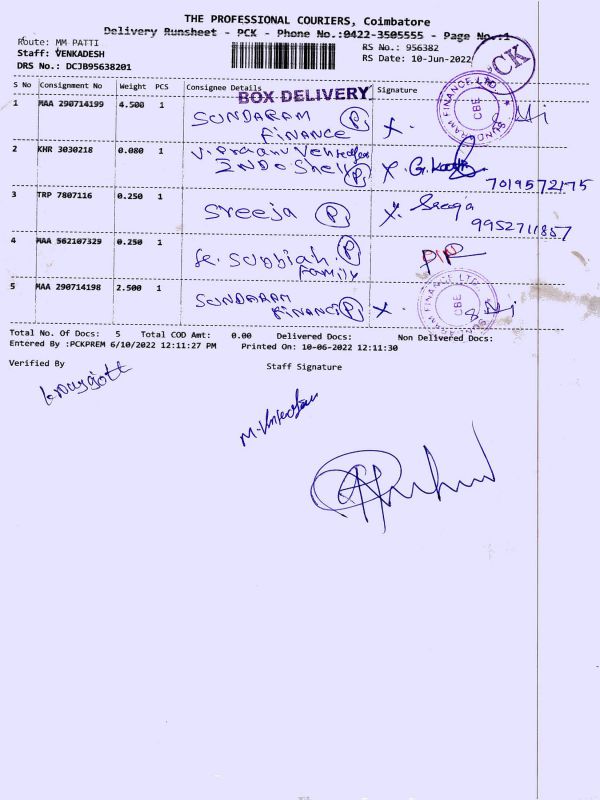 THE PROFESSIONAL COURIERS, Coimbatore
Delivery Runsheet - PCK - Phone No.:0422-3505555 - Page No.:1
Route: MM PATTI
RS No.: 956382
Staff: VENKADESH
RS Date: 10-Jun-2022
DRS No.: DCJB95638201
PCK
S No Consignment No Weight PCS Consignee Details Signature
BOX DELIVERY
1 MAA 290714199 4.500 1 SUNDARAM
FINANCE
SUNDARAM FINANCE LTD
CBE
2 KHR 3030218 0.080 1
Indo Shell
7019572175
3 TRP 7807116 0.250 1 Sreeja
Sreeja
9952711857
4 MAA 562107329 0.250 1 Subbiah
Family
5 MAA 290714198 2.500 1 SUNDARAM
FINANCE
SUNDARAM FINANCE LTD
CBE
Total No. Of Docs: 5 Total COD Amt: 0.00 Delivered Docs: Non Delivered Docs:
Entered By :PCKPREM 6/10/2022 12:11:27 PM Printed On: 10-06-2022 12:11:30
Verified By
Staff Signature